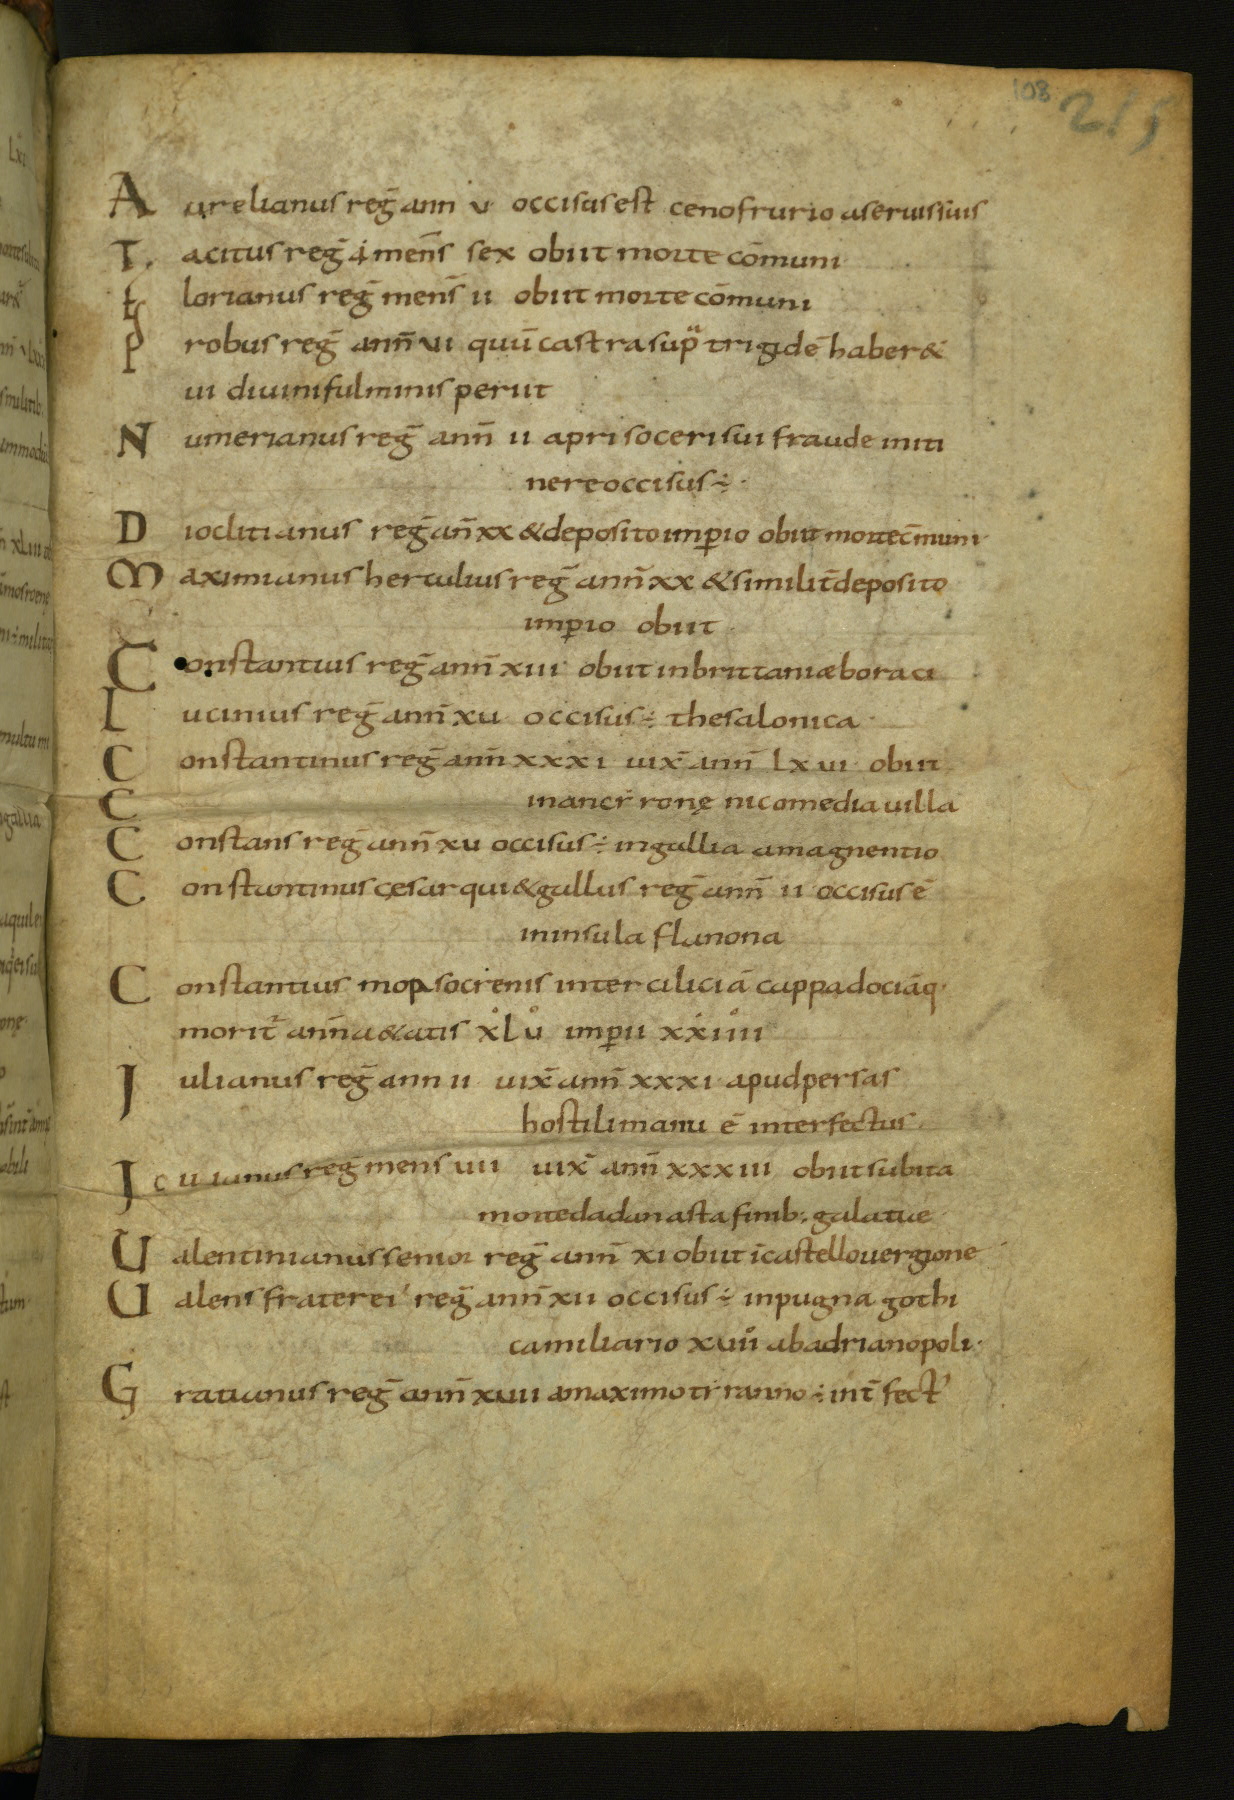 108 215
Aurelianus reg̅ ann v occisus est cenofrurio a seruis suis
Tacitus reg̅ mens̅ sex obiit morte co̅muni
florianus reg̅ mens̅ ii obiit morte co̅muni
Probus reg̅ ann̅ vi quu̅ castra sup̅ trigide̅ haber&
ui diuini fulminis periit
Numerianus reg̅ ann̅ ii apri soceri sui fraude in iti
nere occisus ÷
Dioclitianus reg̅ an̅ xx & deposito imp̅io obiit morte c̅muni
Maximianus herculius reg̅ ann̅ xx & similit̅ deposito
imp̅io obiit
Constantius reg̅ ann̅ xiii obiit in brittania eboraci
Licinius reg̅ ann̅ xu occisus ÷ thesalonica
Constantinus reg̅ ann̅ xxxi uix̅ ann̅ lxui obiit
C in ancirronę nicomedia uilla
Constans reg̅ ann̅ xu occisus ÷ in gallia a magnentio
Constantinus cęsar qui & gallus reg̅ ann̅ ii occisus e̅
in insula flanona
Constantius mopsocrenis inter cilicia̅ cappadocia̅q·
morit̅ ann̅ a&atis xlu imp̅ii xxiiii
Iulianus reg̅ ann ii uix̅ ann̅ xxxi apud persas
hostili manu e̅ interfectus
Iouianus reg̅ mens uii uix̅ ann̅ xxxiii obiit subita
morte dadanasta finib· galatiæ
Ualentinianus senior reg̅ ann̅ xi obiut i̅ castello uergione
Ualens frater ei' reg̅ ann̅ xii occisus ÷ in pugna gothi
ca miliario xuii ab adrianopoli·
Gratianus reg̅ ann̅ xuii a maximo tiranno ÷ int̅fect'